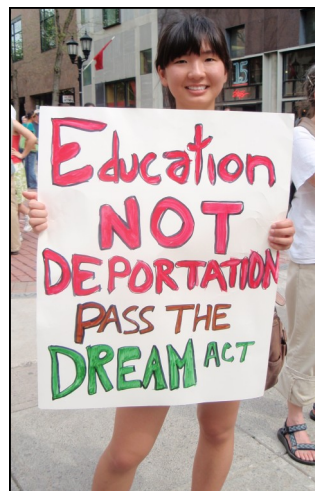 Education
NOT
DEPORTATION
PASS THE
DREAM ACT